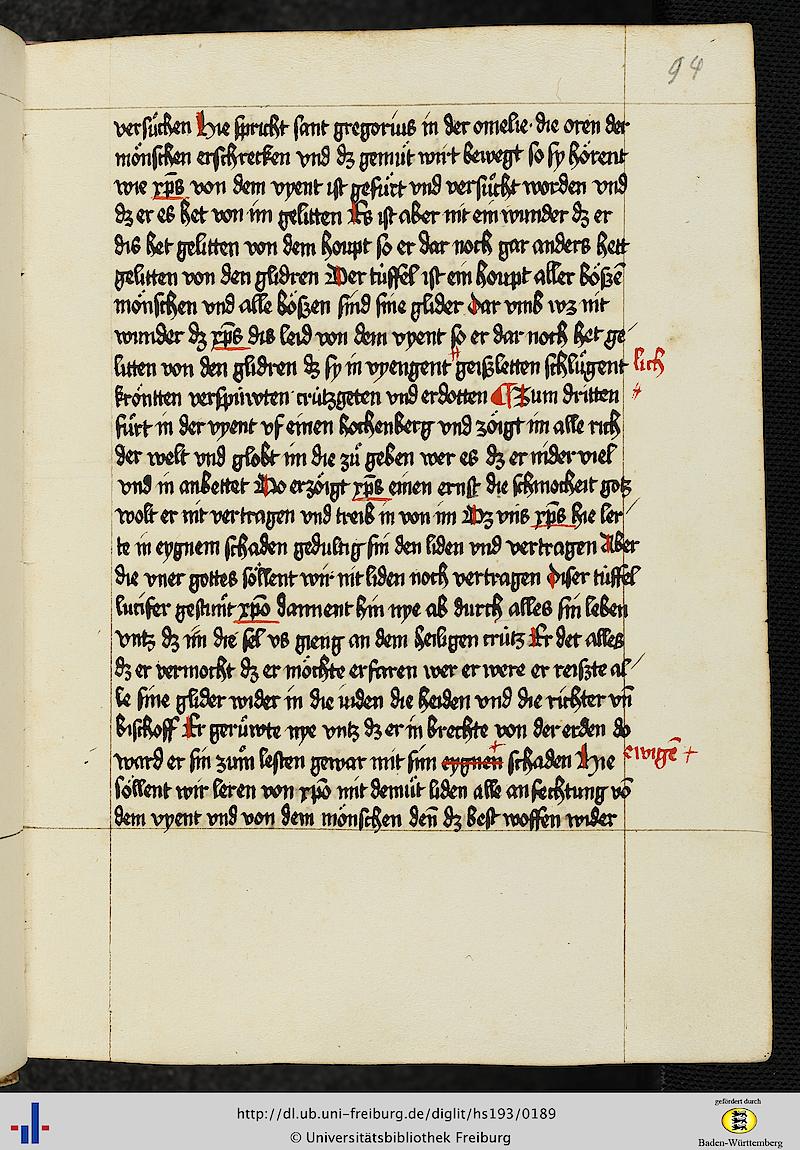 94
versuͦchen Hie spricht sant gregorius in der omelie· die oren der
moͤnschen erschrecken vnd dz gemuͤt wirt bewegt so sy hoͤrent
wie xp̄s von dem vyent ist gefuͤrt vnd versuͦcht worden vnd
dz er es het von im gelitten Es ist aber nit ein wunder dz er
dis het gelitten von dem houpt so er dar noch gar anders hett
gelitten von den glidren Der tuͤffel ist ein houpt aller boͤszē
moͤnschen vnd alle boͤszen sind sine glider dar vmb wz nit
wunder dz xp̄s dis leid von dem vyent so er dar noch het ge/
litten von den glidren dz sy in vyengent geiszletten schluͦgent lich
kroͤntten verspuͤwten crützgeten vnd erdotten ¶ Zum dritten
fuͤrt in der vyent vf einen hochenberg vnd zoͤigt im alle rich
der welt vnd globt im die zuͦ geben wer es dz er nider viel
vnd in anbettet Do erzoͤigt xp̄s einen ernst die schmocheit gotz
wolt er nit vertragen vnd treib in von im Dz vns xp̄s hie ler/
te in eygnem schaden gedultig sin den liden vnd vertragen Aber
die vner gottes soͤllent wir nit liden noch vertragen Diser tuͤffel
lucifer gestuͤnt xp̄o dannent hin nye ab durch alles sin leben
vntz dz im die sel vs gieng an dem heiligen crütz Er det alles
dz er vermocht dz er moͤchte erfaren wer er were er reiszte al/
le sine glider wider in die iuden die heiden vnd die richter vn̄
bischoff Er geruͤwte nye vntz dz er in brechte von der erden do
ward er sin zuͦm lesten gewar mit sim eygnen schaden Hie ewigē +
soͤllent wir leren von xp̄o mit demuͤt liden alle anfechtung vō
dem vyent vnd von dem moͤnschen den̄ dz best woffen wider
http://dl.ub.uni-freiburg.de/diglit/hs193/0189
© Universitätsbibliothek Freiburg
gefördert durch
Baden-Württemberg